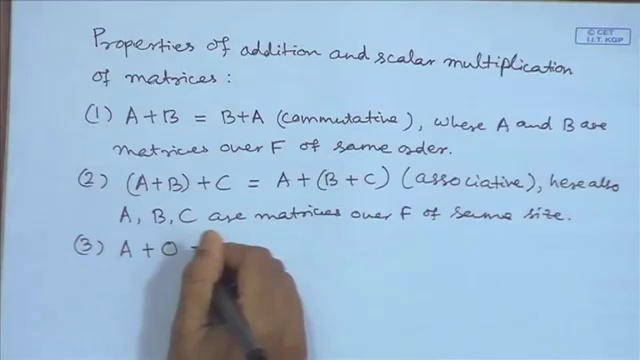 © CET
I.I.T. KGP
Properties of addition and scalar multiplication
of matrices :
(1) A+B = B+A (commutative), where A and B are
matrices over F of same order.
(2) (A+B)+C = A+(B+C) (associative), here also
A, B, C are matrices over F of same size.
(3) A + O